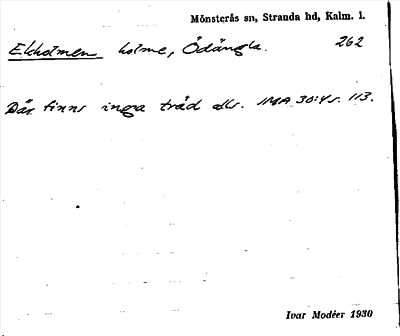 Mönsterås sn, Stranda hd, Kalm. l.
Ekholmen holme, Ödängla. 262
Där finns inga träd alls. IMA 30:45. 113.
Ivar Modéer 1930